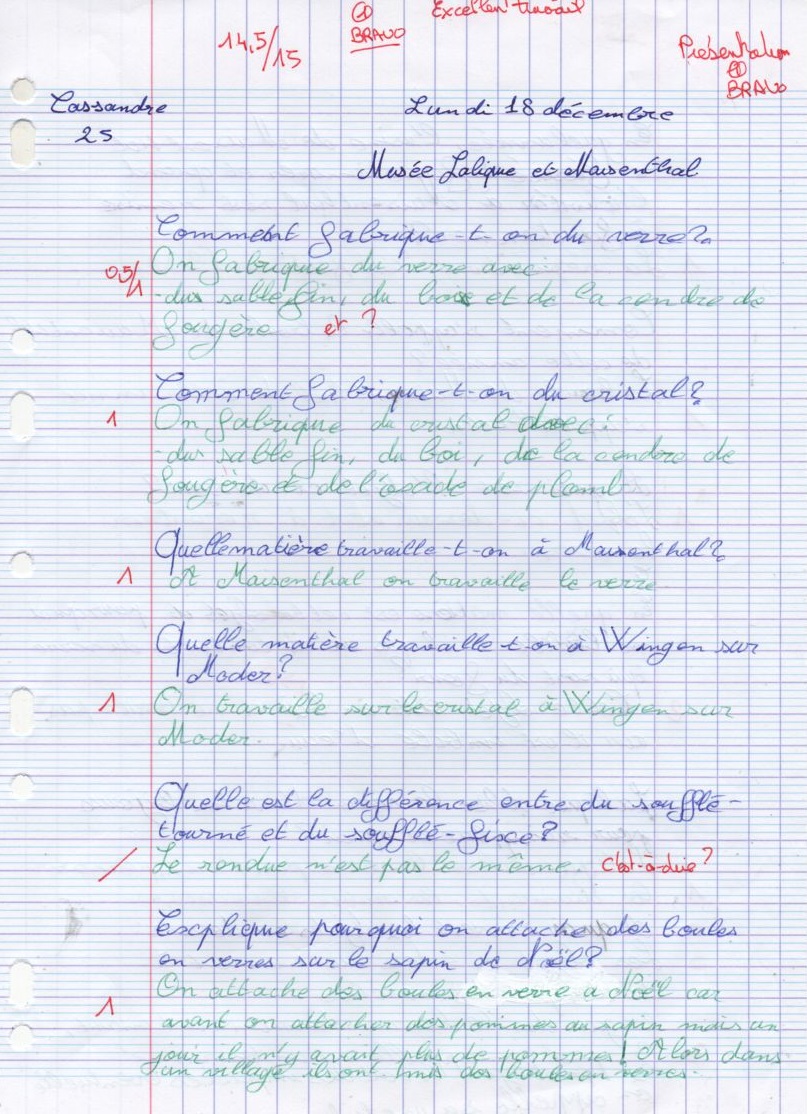 Excellent travail
14,5/15
BRAVO
Présentation
BRAVO
Cassandre
25
Lundi 18 décembre
Musée Lalique et Meisenthal
Comment fabrique-t-on du verre?
On fabrique du verre avec:
0,5/1
-du sable fin, du bois et de la cendre de
fougère et ?
Comment fabrique-t-on du cristal?
1
On fabrique du cristal avec:
-du sable fin, du boi, de la cendre de
fougère et de l'oxade de plomb
Quelle matière travaille-t-on à Meisenthal?
1
A Meisenthal on travaille le verre
Quelle matière travaille-t-on à Wingen sur
Moder?
1
On travaille sur le cristal à Wingen sur
Moder.
Quelle est la différence entre du soufflé-
tourné et du soufflé-fixe?
Le rendue n'est pas le même. c'est-à-dire?
Explique pourquoi on attache des boules
en verres sur le sapin de Noël?
On attache des boules en verre a Noël car
1
avant on attacher des pommes au sapin mais un
jour il n'y avait plus de pommes! Alors dans
un village ils ont mis des boules en verres.